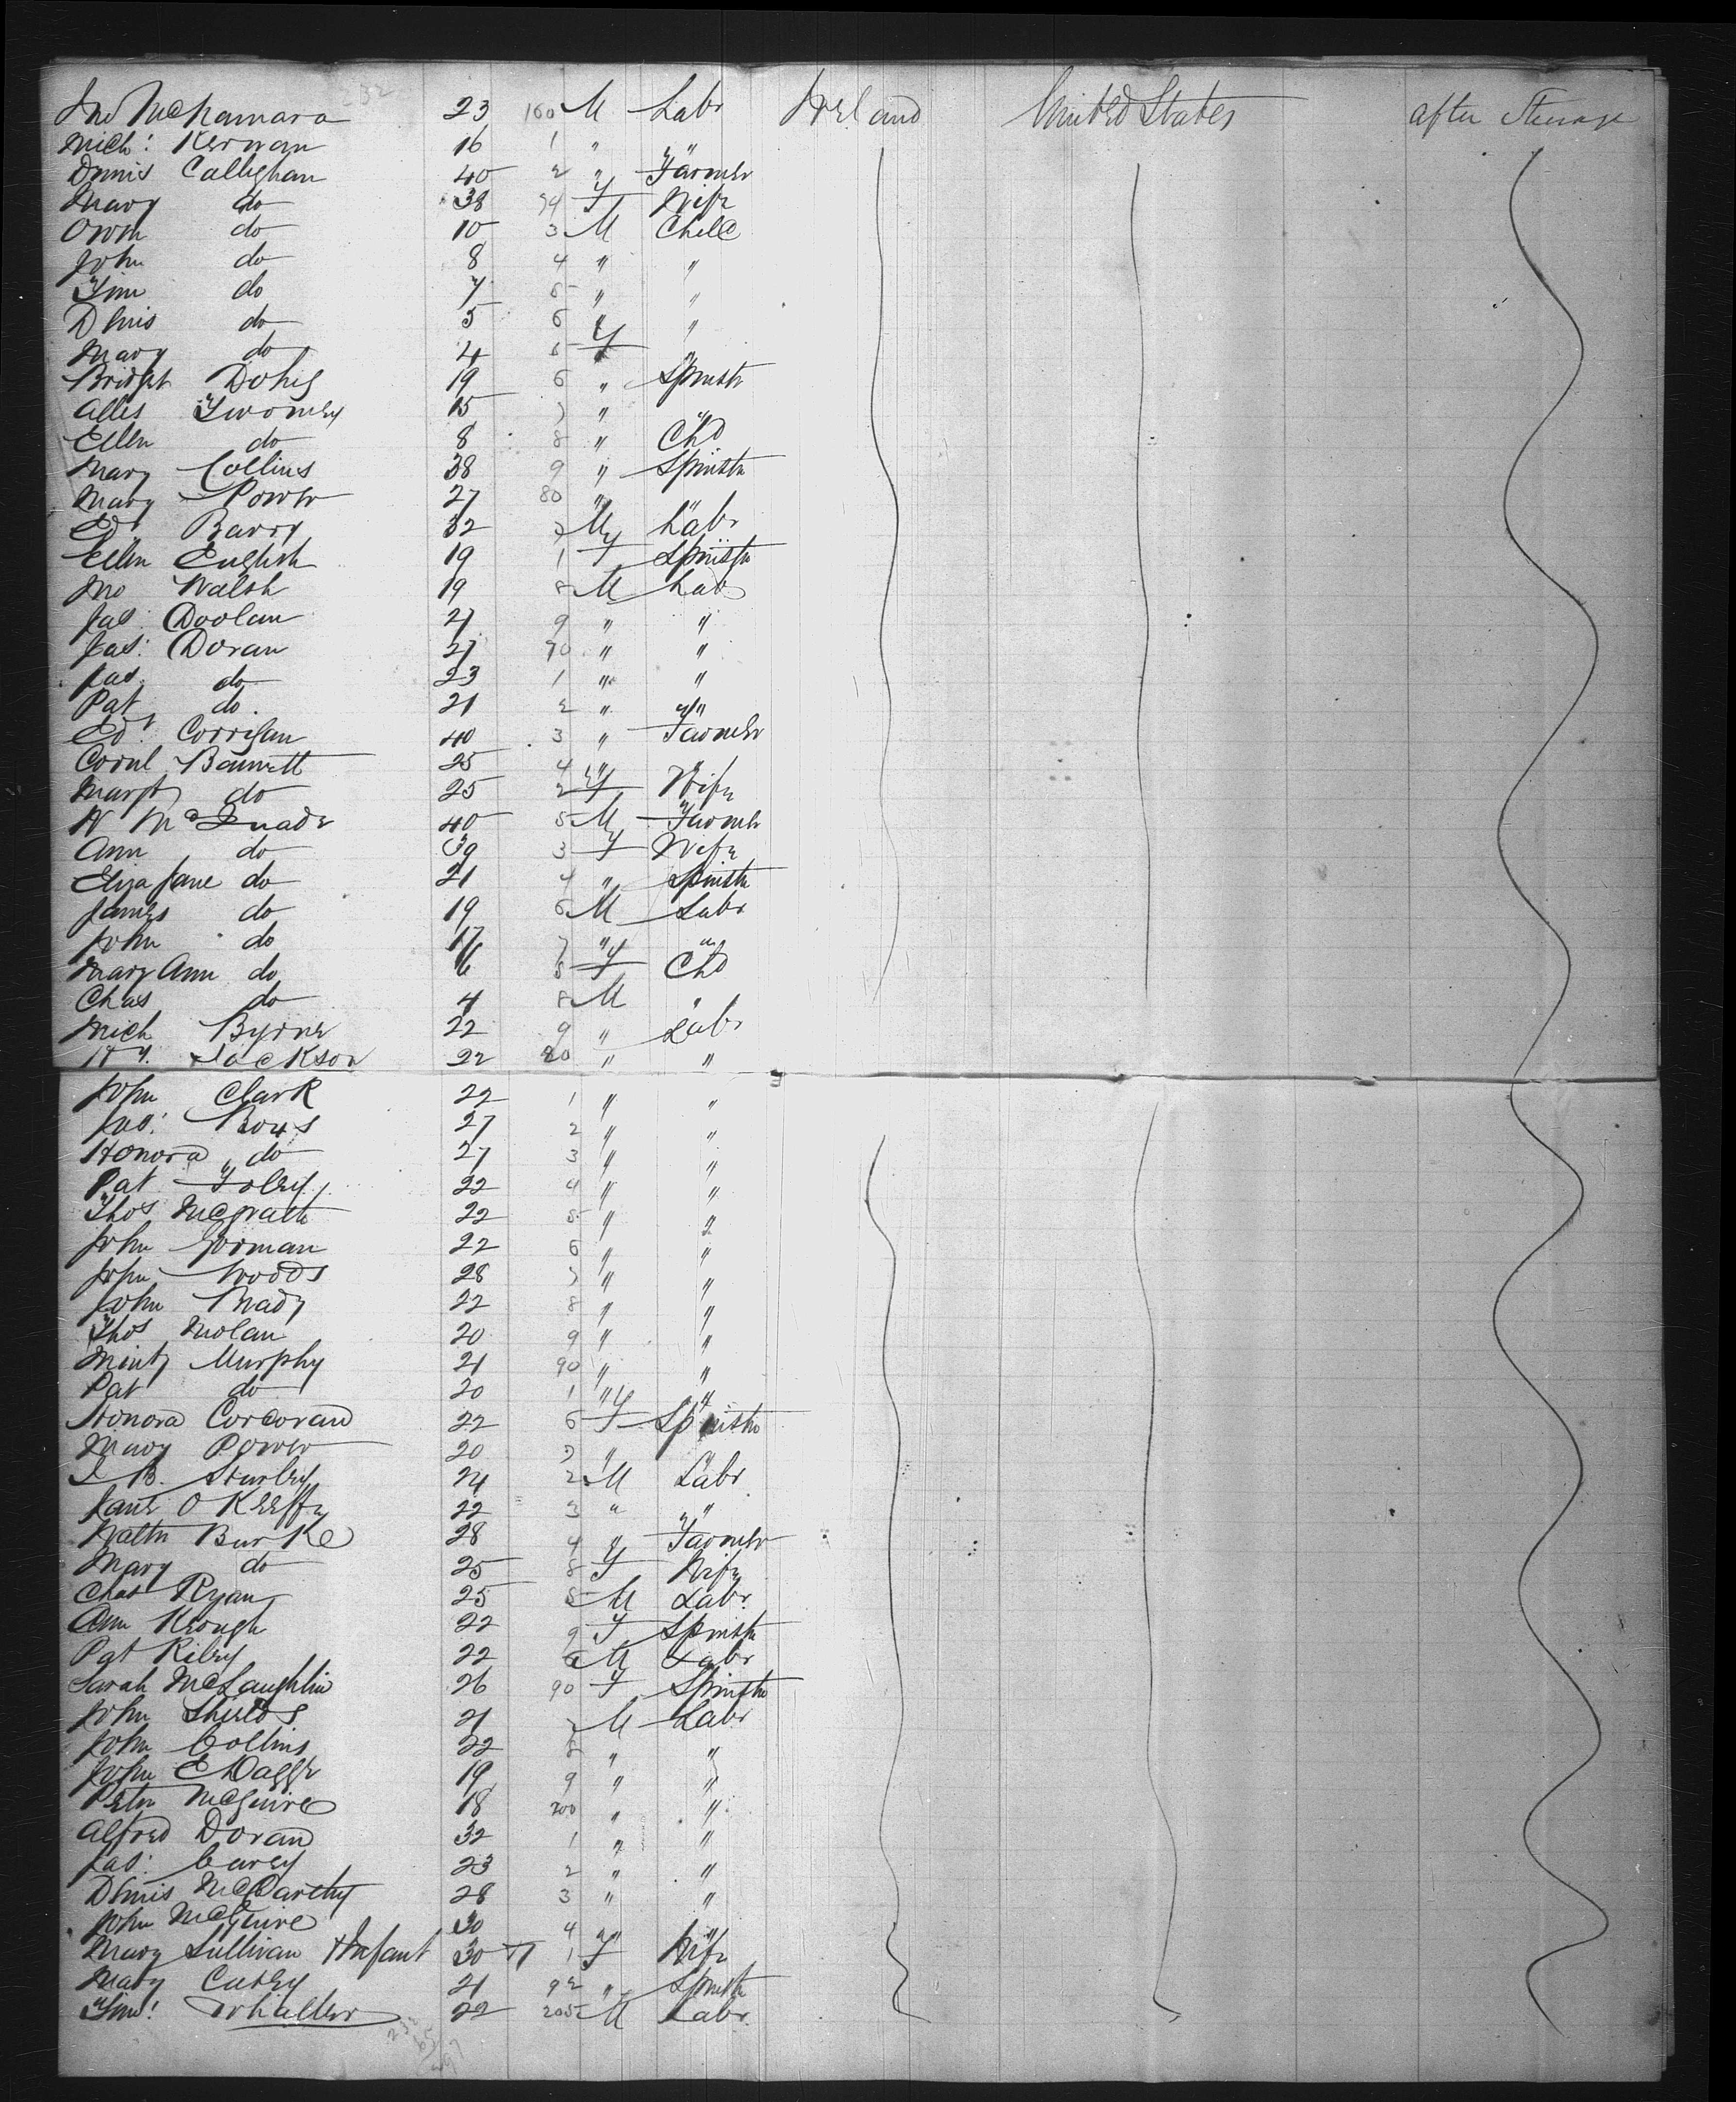 Jno McNamara 23 160 M Labr Ireland United States after Steerage
Mich: Kerwan 16 1 " "
Dennis Callighan 40 2 " Farmer
Mary do 38 74 F Wife
Owen do 10 3 M Child
John do 8 4 " "
Tim do 7 5 " "
Dnnis do 5 6 " "
Mary do 4 5 F "
Bridget Dohig 19 6 " Spinstr
Alles Twomey 15 7 " "
Ellen do 8 8 " Chd
Mary Collins 38 9 " Spinstr
Mary Power 27 80 " "
Ed Barry 32 7 M Labr
Ellen English 19 1 F Spinstr
Jno Walsh 19 8 M Lab
Jas: Doolan 21 9 " "
Jas: Doran 21 70 " "
Jas. do 23 1 " "
Pat do. 21 2 " "
Ed. Corrigan 40 3 " Farmer
Cornl Bannett 25 4 " "
Margt do 25 2 F Wife
W McQuade 40 5 M Farmer
Ann do 39 3 F Wife
Eliza Jane do 21 4 " Spinstr
James do 19 6 M Labr
John do 17 7 " "
Mary Ann do 6 5 F Chd
Chas do 4 8 M "
Mich Byrne 22 9 " Labr
Hy. Jackson 22 80 " "
John Clark 22 1 " "
Jas: 27 2 " "
Honora do 27 3 " "
Pat Foley 22 4 " "
Thos McGrath 22 5 " "
John Gorman 22 6 " "
John Woods 28 7 " "
John Brady 22 8 " "
Thos Nolan 20 9 " "
Murphy 21 90 " "
Pat do 20 1 " "
Honora Corcoran 22 6 F Spinstr
Mary Power 20 7 " "
B. 24 2 M Labr
Jane O Keeffe 22 3 " "
Walter Burke 28 4 " Farmer
Mary do 25 8 F Wife
Chas Ryan 25 5 M Labr.
Ann Keough 22 9 F Spinstr
Pat Riley 22 6 M Labr
Sarah McLaughlin 26 90 F Spinstr
John Shields 21 7 M Labr
John Collins 22 8 " "
John 19 9 " "
Peter McGuire 18 200 " "
Alfred Doran 32 1 " "
Jas: Carey 23 2 " "
Dnnis McCarthy 28 3 " "
John McGuire 30 4 " "
Mary Sullivan + Infant 30 1 F Wife
Mary Casey 21 92 " Spinstr
Whaller 22 205 M Labr.